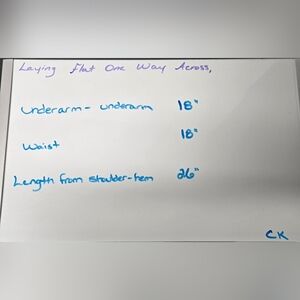 Laying flat One Way Across,
underarm - underarm 18"
Waist 18"
Length from shoulder-hem 26"
CK